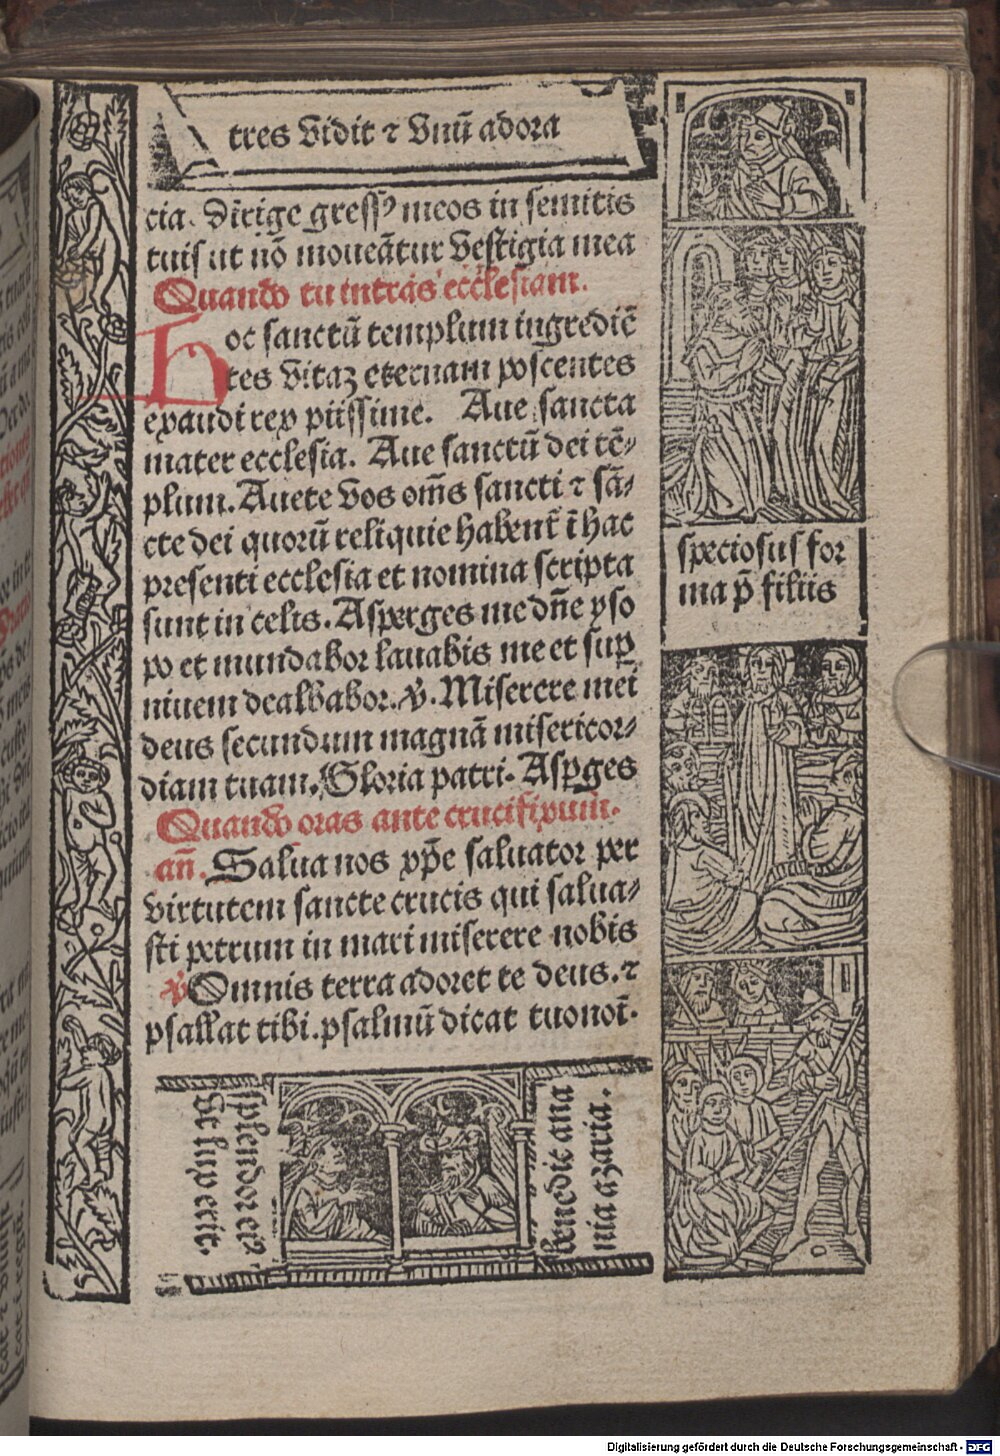 tres vidit ⁊ vnū adora
cia. Dirige gressꝰ meos in semitis
tuis ut nō moueātur vestigia mea
Quando tu intras ecclesiam.
Hoc sanctū templum ingrediē
tes vitaꝫ eternam poscentes
exaudi rex piissime. Aue sancta
mater ecclesia. Aue sanctū dei tē-
plum. Auete vos om̄s sancti ⁊ sā-
cte dei quorū reliquie habent̄ ī hac
presenti ecclesia et nomina scripta
sunt in celis. Asperges me dn̄e yso
po et mundabor lauabis me et suꝑ
niuem dealbabor. ℣. Miserere mei
deus secundum magnā misericor-
diam tuam. Gloria patri. Asꝑges
Quando oras ante crucifixum.
an̄. Salua nos xp̄e saluator per
virtutem sancte crucis qui salua-
sti petrum in mari miserere nobis
℣ Omnis terra adoret te deus. ⁊
psallat tibi. psalmū dicat tuo noī.
speciosus for
ma p̄ filiis
splendor eiꝰ
Vt lux erit.
benedic ana
nia azaria.
Digitalisierung gefördert durch die Deutsche Forschungsgemeinschaft - DFG